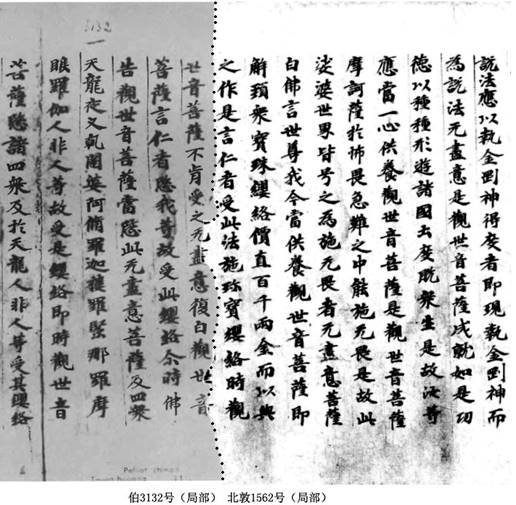 3132
說法應以執金剛神得度者即現執金剛神而
為說法无盡意是觀世音菩薩成就如是功
德以種種形遊諸國土度脫衆生是故汝等
應當一心供養觀世音菩薩是觀世音菩薩
摩訶薩於怖畏急難之中能施无畏是故此
娑婆世界皆号之為施无畏者无盡意菩薩
白佛言世尊我今當供養觀世音菩薩即
解頸衆寶珠纓絡價直百千兩金而以與
之作是言仁者受此法施珎寶纓絡時觀
世音菩薩不肯受之无盡意復白觀世音
菩薩言仁者愍我等故受此纓絡尒時佛
告觀世音菩薩當愍此无盡意菩薩及四衆
天龍夜叉乹闥婆阿脩羅迦樓羅緊那羅摩
睺羅伽人非人等故受是纓絡即時觀世音
菩薩愍諸四衆及於天龍人非人等受其纓絡
伯3132号（局部） 北敦1562号（局部）